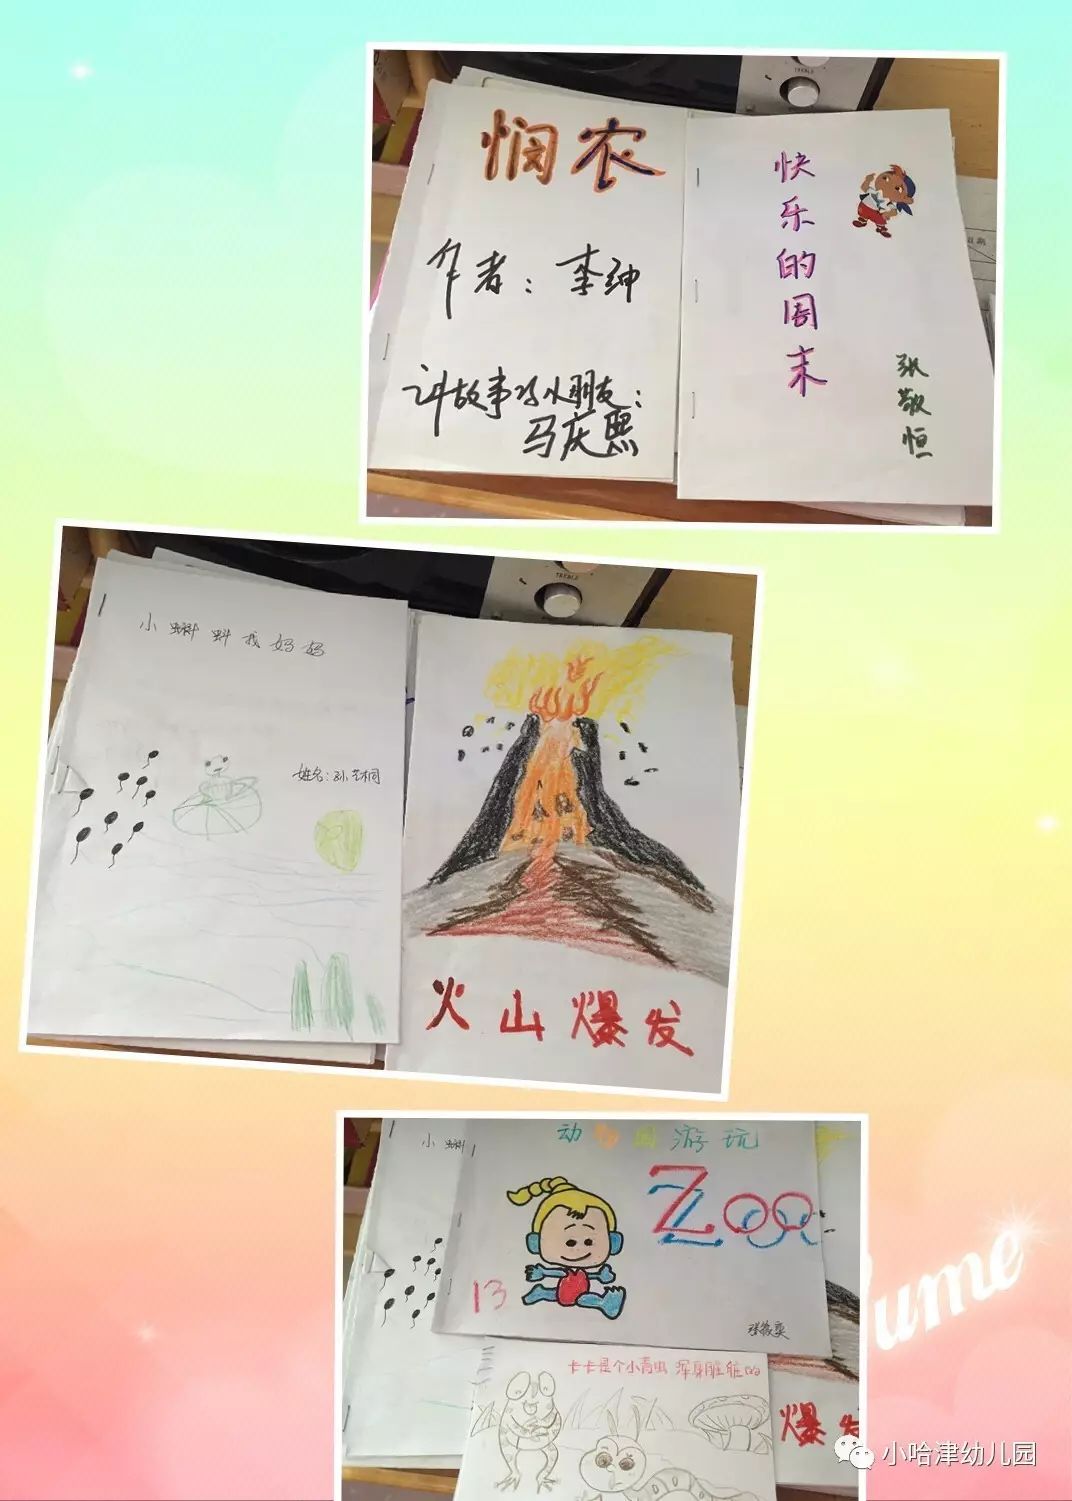 TREBLE
悯农
作者：李绅
讲故事的小朋友：
马庆熙
快乐的周末
张敬恒
TREBLE
小蝌蚪找妈妈
姓名：孙艺桐
火山爆发
小蝌
动物园游玩
ZOO
13
卡卡是个小青虫 浑身脏脏的
爆发
ume
小哈津幼儿园